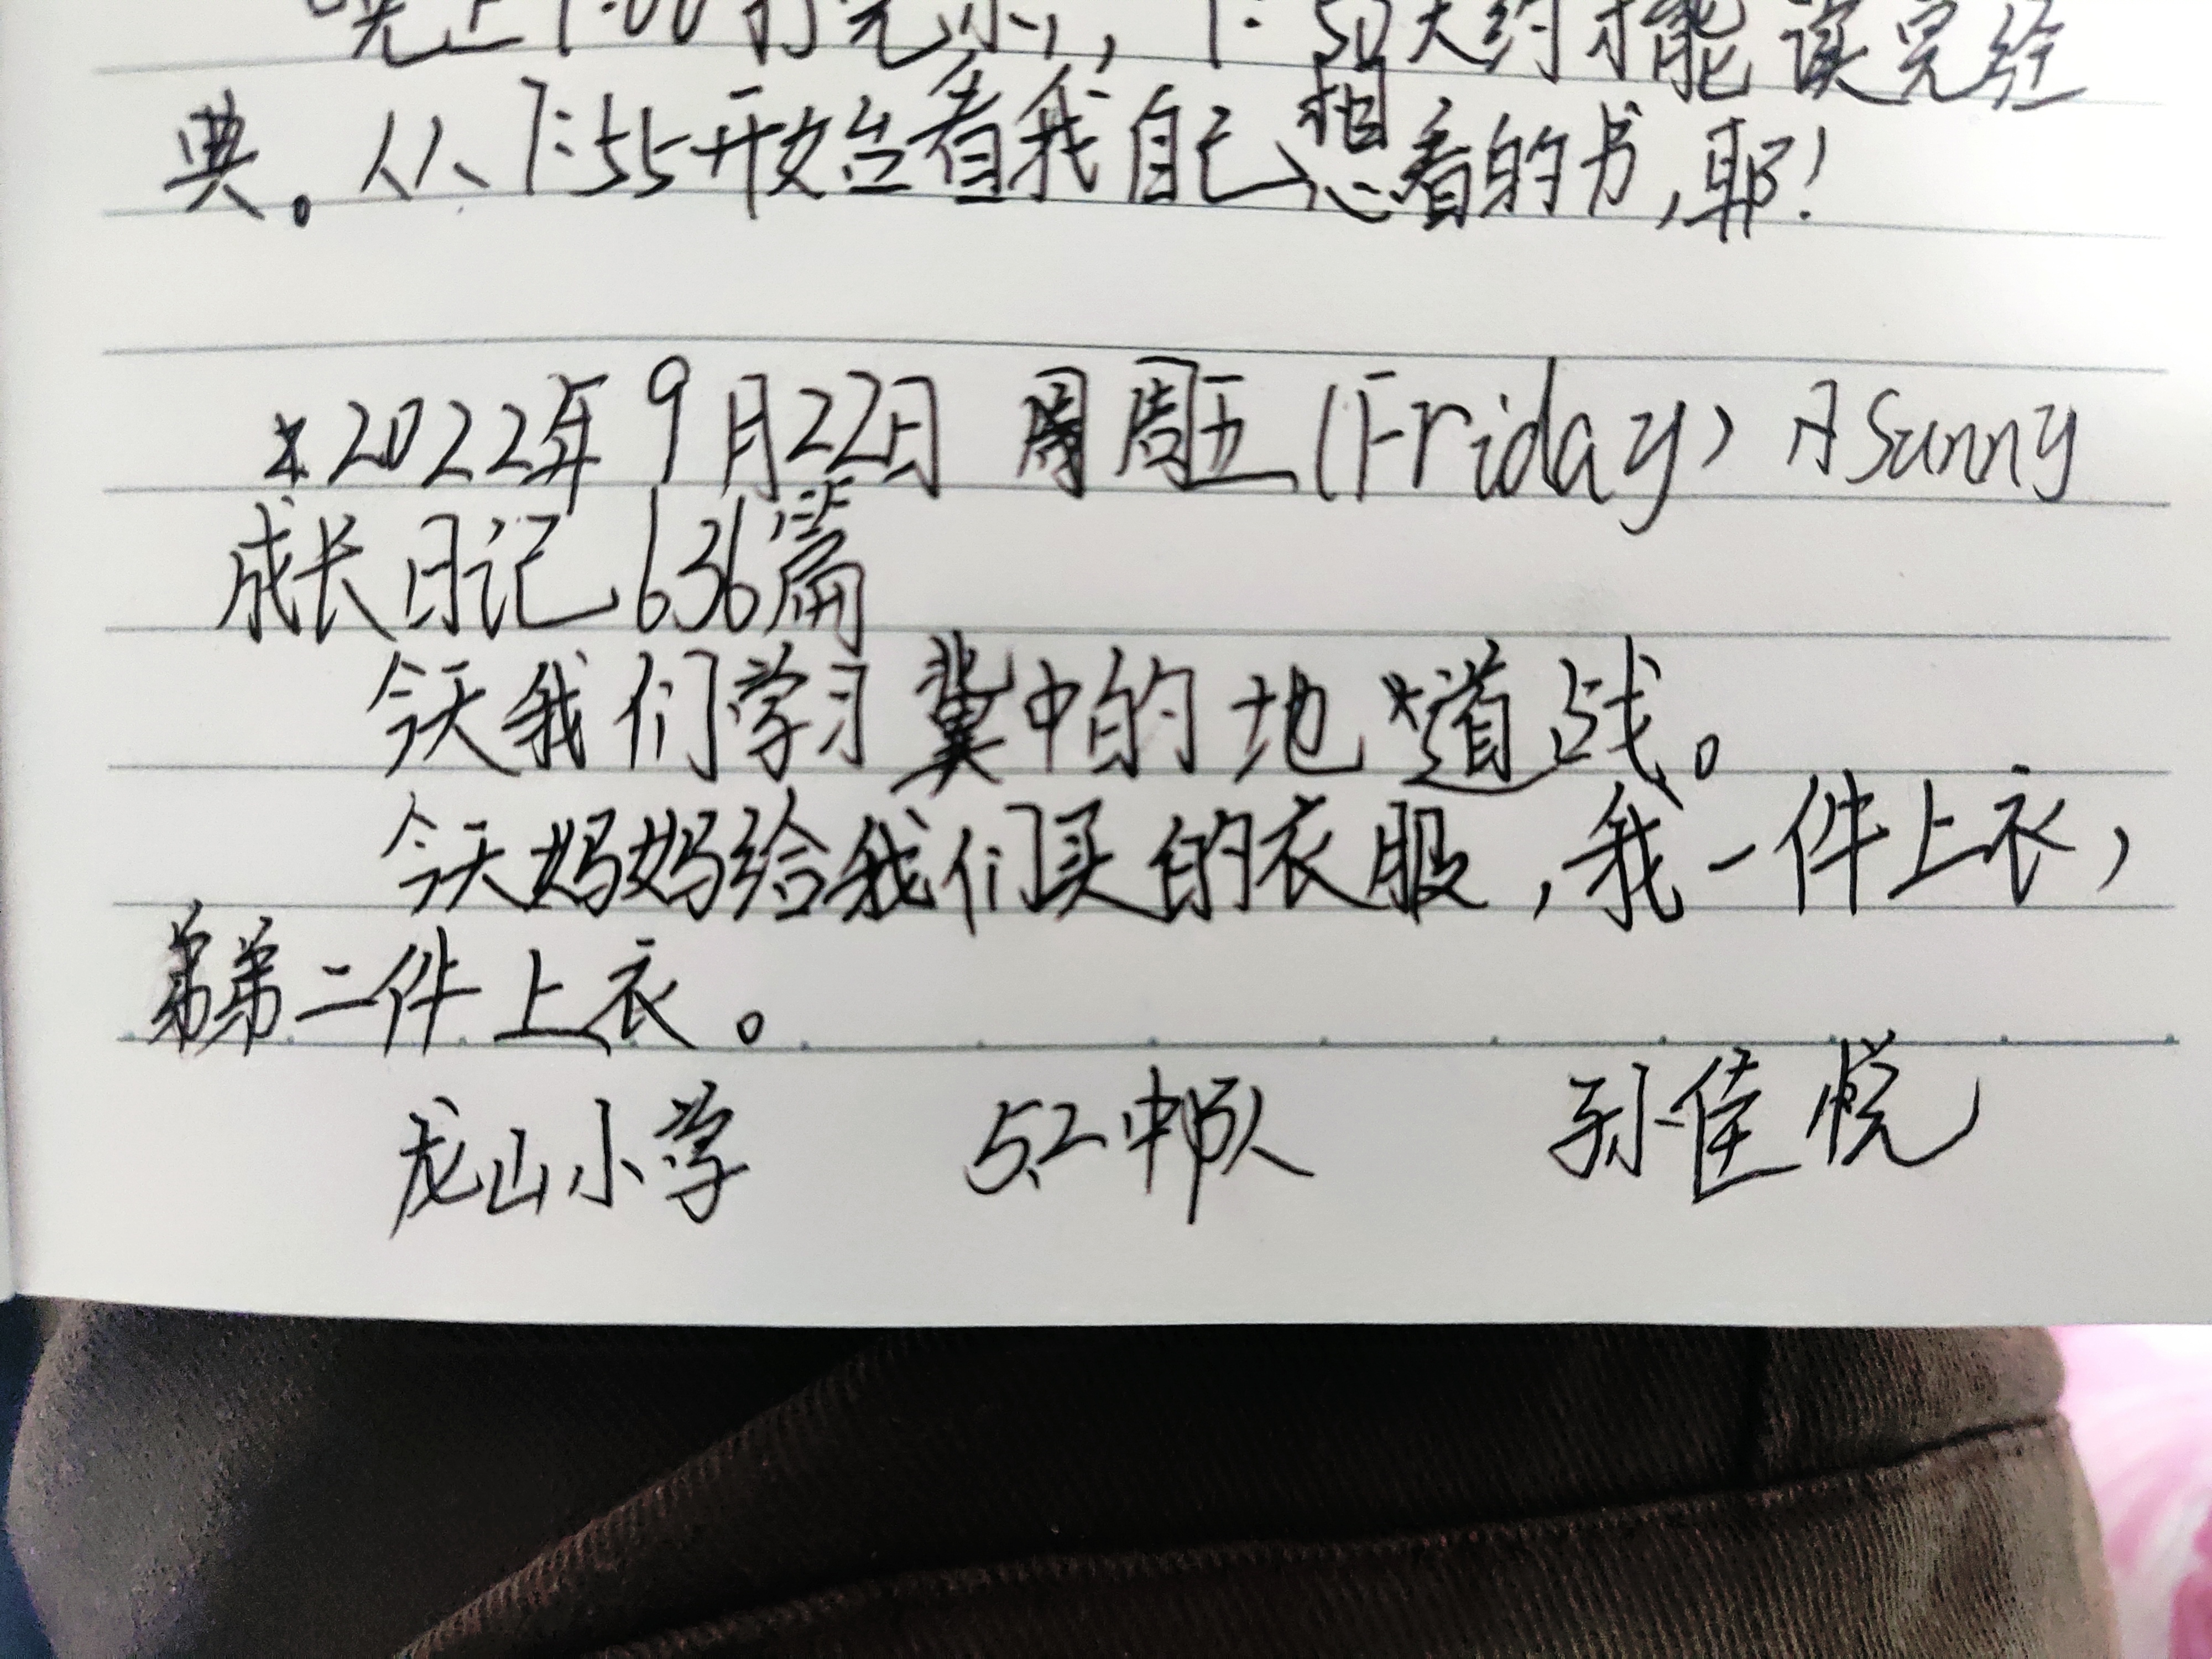 晚上7:00打完水,7:50大约才能读完经
典。从7:55开始看我自己想看的书,耶!
*2022年9月22日 周五(Friday)月Sunny
成长日记636篇
今天我们学习冀中的地道战。
今天妈妈给我们买的衣服,我一件上衣,
弟弟二件上衣。
龙山小学 5.2中队 孙佳悦